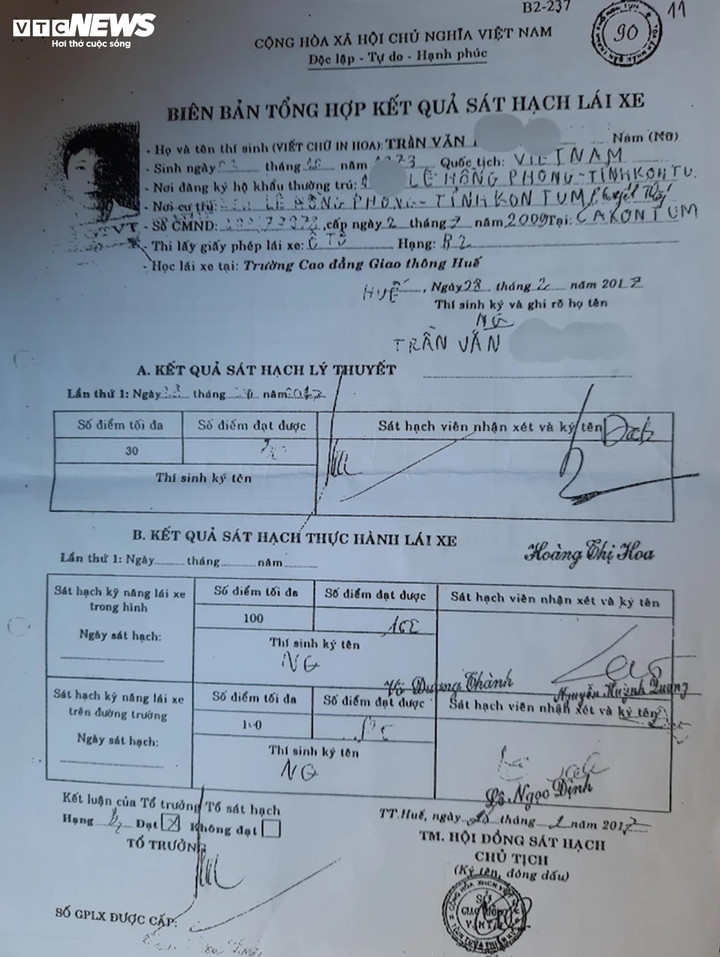 VTC NEWS
Hơi thở cuộc sống
B2-237
90
11
CỘNG HÒA XÃ HỘI CHỦ NGHĨA VIỆT NAM
Độc lập - Tự do - Hạnh phúc
BIÊN BẢN TỔNG HỢP KẾT QUẢ SÁT HẠCH LÁI XE
- Họ và tên thí sinh (VIẾT CHỮ IN HOA): TRẦN VĂN Nam (Nữ)
- Sinh ngày tháng năm Quốc tịch: VIETNAM
- Nơi đăng ký hộ khẩu thường trú: LÊ HỒNG PHONG - TỈNH KONTU
- Nơi cư trú: LÊ HỒNG PHONG - TỈNH KONTUM
- Số CMND: cấp ngày 2 tháng 7 năm 2009 Tại: CAKONTUM
- Thi lấy giấy phép lái xe: Ô TÔ Hạng: B2
- Học lái xe tại: Trường Cao đẳng Giao thông Huế
HUẾ, Ngày 28 tháng 2 năm 2017
Thí sinh ký và ghi rõ họ tên
TRẦN VĂN
A. KẾT QUẢ SÁT HẠCH LÝ THUYẾT
Lần thứ 1: Ngày tháng năm 2017
Số điểm tối đa Số điểm đạt được Sát hạch viên nhận xét và ký tên
30
Thí sinh ký tên
B. KẾT QUẢ SÁT HẠCH THỰC HÀNH LÁI XE
Hoàng Thị Hoa
Lần thứ 1: Ngày tháng năm
Sát hạch kỹ năng lái xe trong hình Số điểm tối đa Số điểm đạt được Sát hạch viên nhận xét và ký tên
100
Ngày sát hạch: Thí sinh ký tên
Võ Dương Thành Nguyễn Huỳnh Quang
Sát hạch kỹ năng lái xe trên đường trường Số điểm tối đa Số điểm đạt được Sát hạch viên nhận xét và ký tên
100
Ngày sát hạch: Thí sinh ký tên
Lê Ngọc Định
Kết luận của Tổ trưởng Tổ sát hạch
Hạng Đạt Không đạt
TỔ TRƯỞNG
TT.Huế, ngày 28 tháng 2 năm 2017
TM. HỘI ĐỒNG SÁT HẠCH
CHỦ TỊCH
(Ký tên, đóng dấu)
SỐ GPLX ĐƯỢC CẤP: